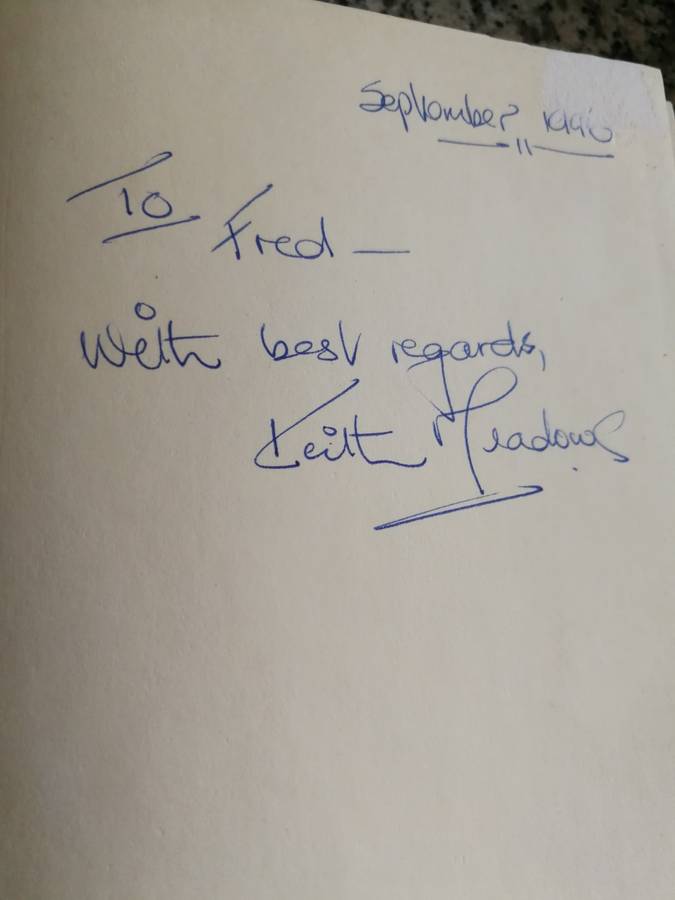 September, 1996
To
Fred —
With best regards,
Keith Meadows